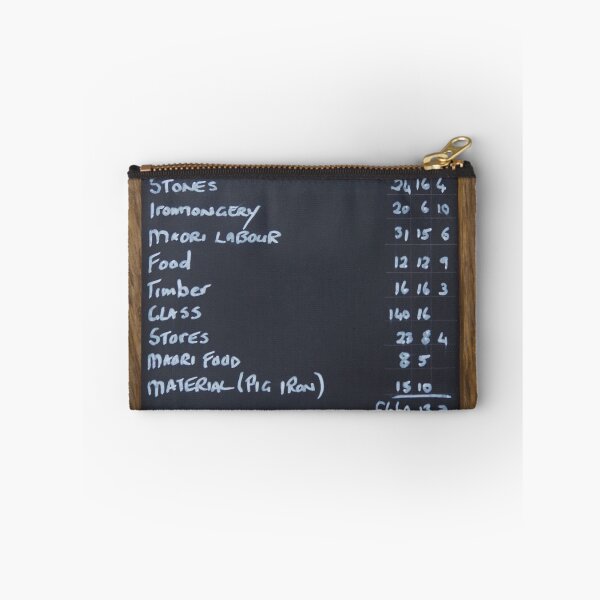 STONES 24 16 4
IRONMONGERY 20 6 10
MAORI LABOUR 31 15 6
Food 12 12 9
Timber 16 16 3
GLASS 140 16
STORES 8 4
MAORI FOOD 8 5
MATERIAL (PIG IRON) 15 10